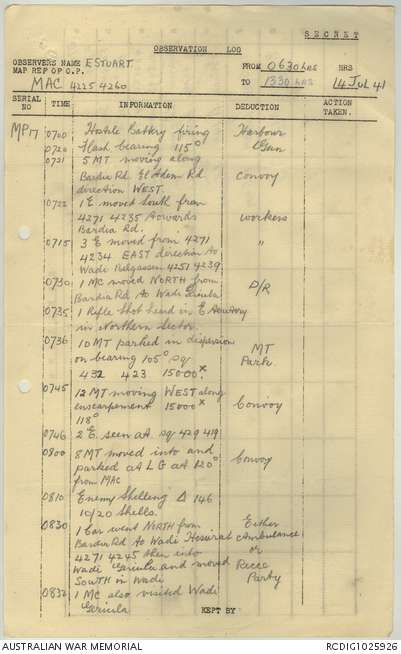 SECRET
OBSERVATION LOG
OBSERVERS NAME E STUART FROM 0630 hrs HRS
MAP REP OF O.P. MAC 4225 4260 TO 1330 hrs 14 Jul 41
SERIAL NO TIME INFORMATION DEDUCTION ACTION TAKEN.
MP17 0700 Hostile Battery firing Harbour
0720 Flash bearing 115° Gun
0721 5 MT moving along
Bardia Rd El Adem Rd convoy
direction WEST.
0722 1 E moved South from
4271 4235 towards workers
Bardia Rd.
0715 3 E moved from 4271 "
4234 EAST direction to
Wadi Belgassem 4251 4239
0730 1 MC moved NORTH from D/R
Bardia Rd to Wadi Gericula
0735 1 Rifle Shot heard in E territory
in Northern Sector.
0736 10 MT parked in dispersion MT
on bearing 105° sq Park.
432 423 15000x
0745 12 MT moving WEST along
enscarpement 15000x Convoy
118°
0746 2 E. seen at sq 429 419
0800 8 MT moved into and
parked at L G at 120° Convoy
from MAC
0810 Enemy Shelling Δ 146
10/20 Shells.
0830 1 Car went NORTH from Either
Bardia Rd to Wadi Ambulance
4271 4245 then into or
Wadi Gericula and moved Recce
SOUTH in Wadi Party
0832 1 MC also visited Wadi
Gericula
KEPT BY
AUSTRALIAN WAR MEMORIAL RCDIG1025926